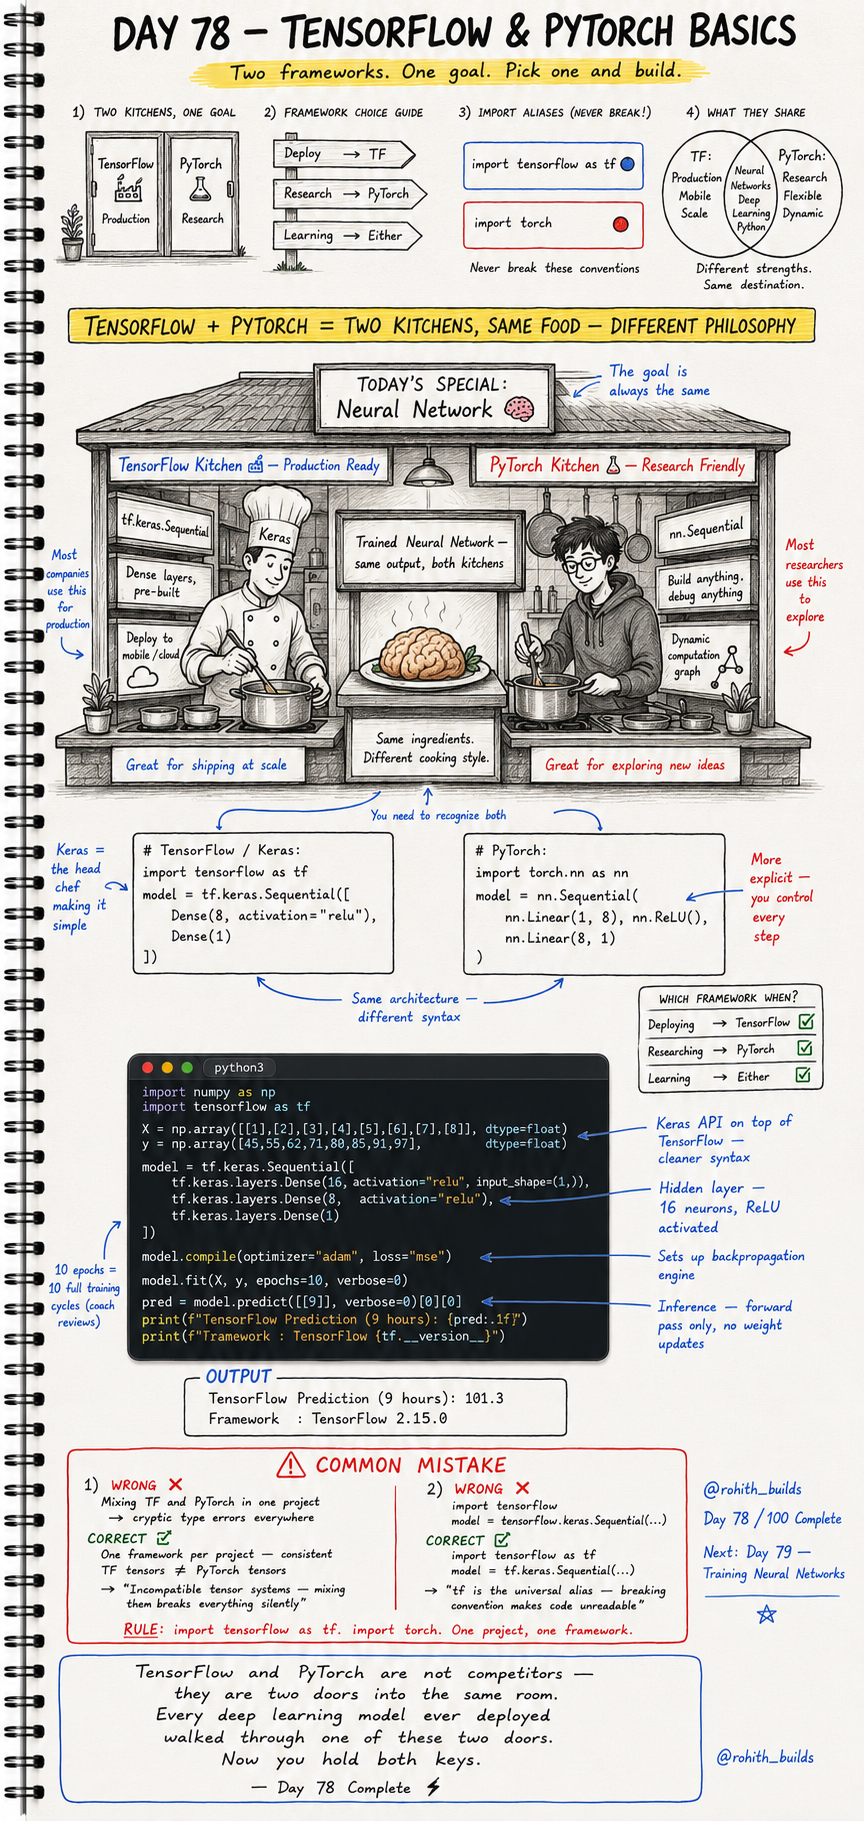 DAY 78 – TENSORFLOW & PYTORCH BASICS
Two frameworks. One goal. Pick one and build.
1) TWO KITCHENS, ONE GOAL
TensorFlow
Production
PyTorch
Research
2) FRAMEWORK CHOICE GUIDE
Deploy → TF
Research → PyTorch
Learning → Either
3) IMPORT ALIASES (NEVER BREAK!)
import tensorflow as tf
import torch
Never break these conventions
4) WHAT THEY SHARE
TF:
Production
Mobile
Scale
Neural
Networks
Deep
Learning
Python
PyTorch:
Research
Flexible
Dynamic
Different strengths.
Same destination.
TENSORFLOW + PYTORCH = TWO KITCHENS, SAME FOOD – DIFFERENT PHILOSOPHY
TODAY'S SPECIAL:
Neural Network
The goal is
always the same
TensorFlow Kitchen – Production Ready
PyTorch Kitchen – Research Friendly
tf.keras.Sequential
Dense layers,
pre-built
Deploy to
mobile/cloud
Keras
Trained Neural Network –
same output, both kitchens
nn.Sequential
Build anything.
debug anything
Dynamic
computation
graph
Most
companies
use this
for
production
Most
researchers
use this
to
explore
Great for shipping at scale
Same ingredients.
Different cooking style.
Great for exploring new ideas
You need to recognize both
Keras =
the head
chef
making it
simple
# TensorFlow / Keras:
import tensorflow as tf
model = tf.keras.Sequential([
Dense(8, activation="relu"),
Dense(1)
])
# PyTorch:
import torch.nn as nn
model = nn.Sequential(
nn.Linear(1, 8), nn.ReLU(),
nn.Linear(8, 1)
)
More
explicit –
you control
every
step
Same architecture –
different syntax
WHICH FRAMEWORK WHEN?
Deploying → TensorFlow
Researching → PyTorch
Learning → Either
python3
import numpy as np
import tensorflow as tf
X = np.array([[1],[2],[3],[4],[5],[6],[7],[8]], dtype=float)
y = np.array([45,55,62,71,80,85,91,97], dtype=float)
model = tf.keras.Sequential([
tf.keras.layers.Dense(16, activation="relu", input_shape=(1,)),
tf.keras.layers.Dense(8, activation="relu"),
tf.keras.layers.Dense(1)
])
model.compile(optimizer="adam", loss="mse")
model.fit(X, y, epochs=10, verbose=0)
pred = model.predict([[9]], verbose=0)[0][0]
print(f"TensorFlow Prediction (9 hours): {pred:.1f}")
print(f"Tramework : TensorFlow {tf.__version__}")
Keras API on top of
TensorFlow –
cleaner syntax
Hidden layer –
16 neurons, ReLU
activated
Sets up backpropagation
engine
Inference – forward
pass only, no weight
updates
10 epochs =
10 full training
cycles (coach
reviews)
OUTPUT
TensorFlow Prediction (9 hours): 101.3
Framework : TensorFlow 2.15.0
COMMON MISTAKE
1) WRONG ✗
Mixing TF and PyTorch in one project
→ cryptic type errors everywhere
CORRECT ☑
One framework per project – consistent
TF tensors ≠ PyTorch tensors
→ "Incompatible tensor systems – mixing
them breaks everything silently"
2) WRONG ✗
import tensorflow
model = tensorflow.keras.Sequential(...)
CORRECT ☑
import tensorflow as tf
model = tf.keras.Sequential(...)
→ "tf is the universal alias – breaking
convention makes code unreadable"
RULE: import tensorflow as tf. import torch. One project, one framework.
@rohith_builds
Day 78 / 100 Complete
Next: Day 79 –
Training Neural Networks
TensorFlow and PyTorch are not competitors –
they are two doors into the same room.
Every deep learning model ever deployed
walked through one of these two doors.
Now you hold both keys.
– Day 78 Complete
@rohith_builds